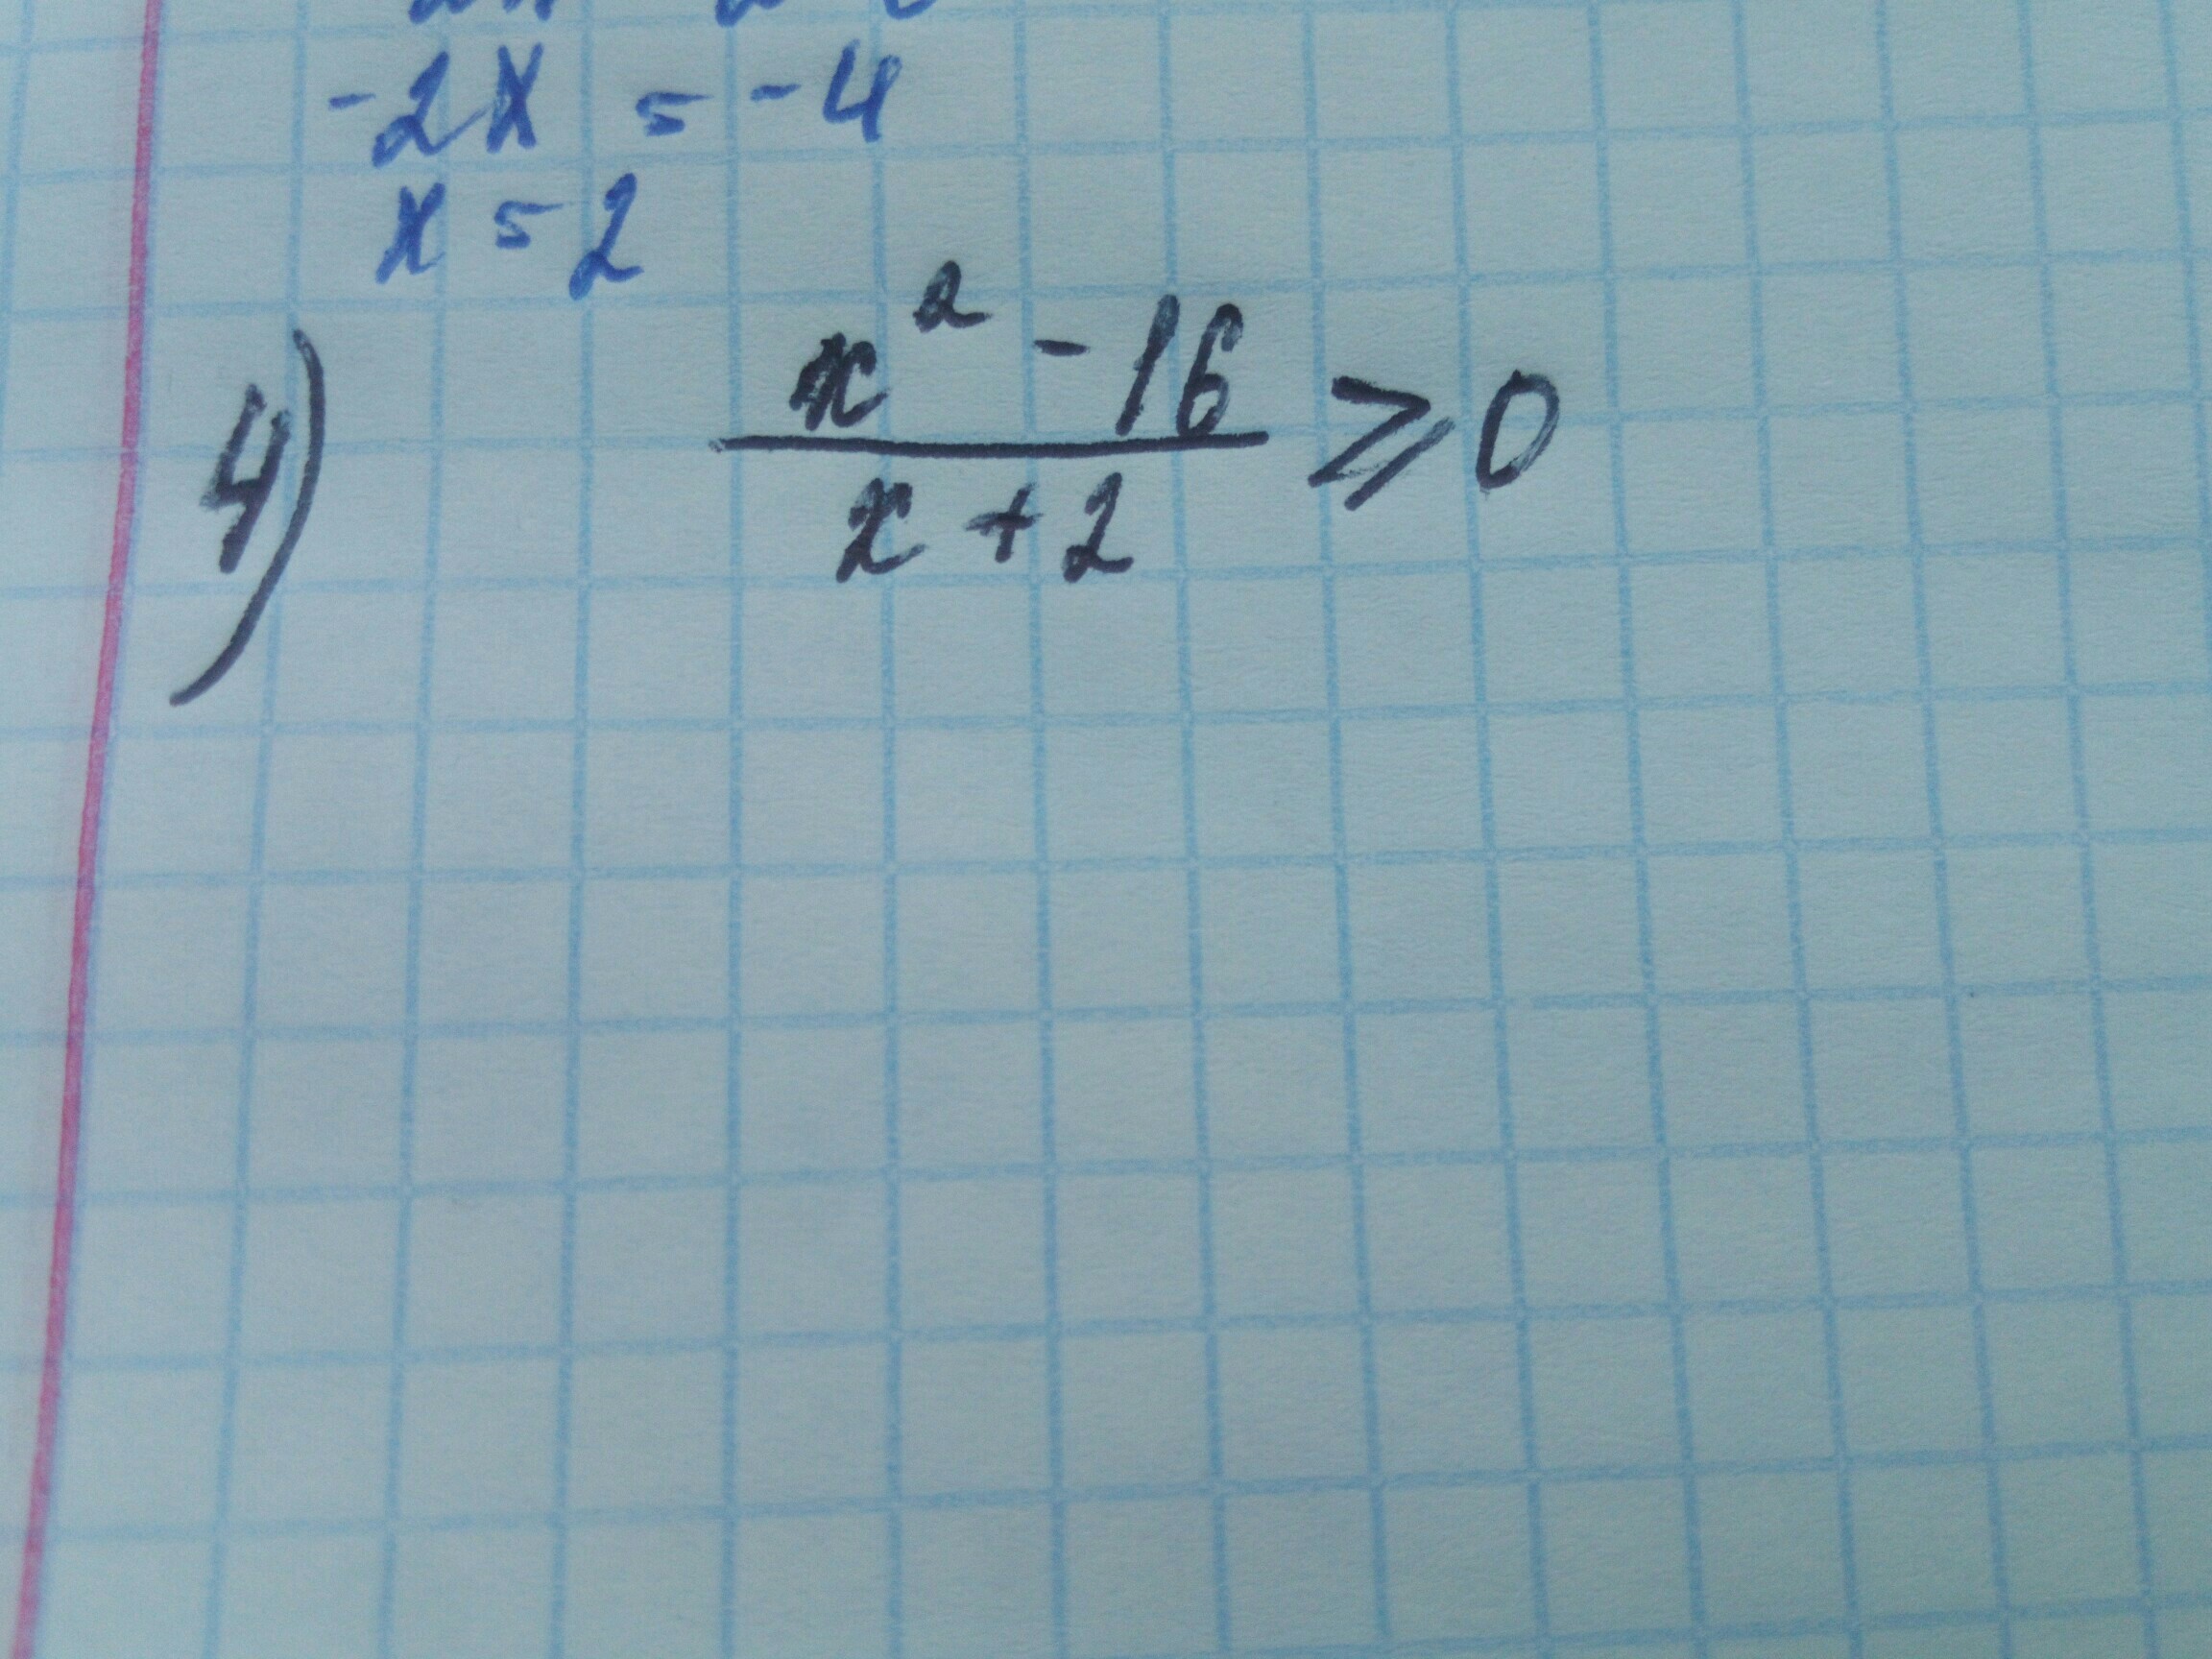 -2x = -4
x = 2
4) x² - 16
x + 2 ≥ 0